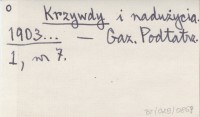 o
Krzywdy i nadużycia.
1903... — Gaz. Podtatrz.
1, nr 7.